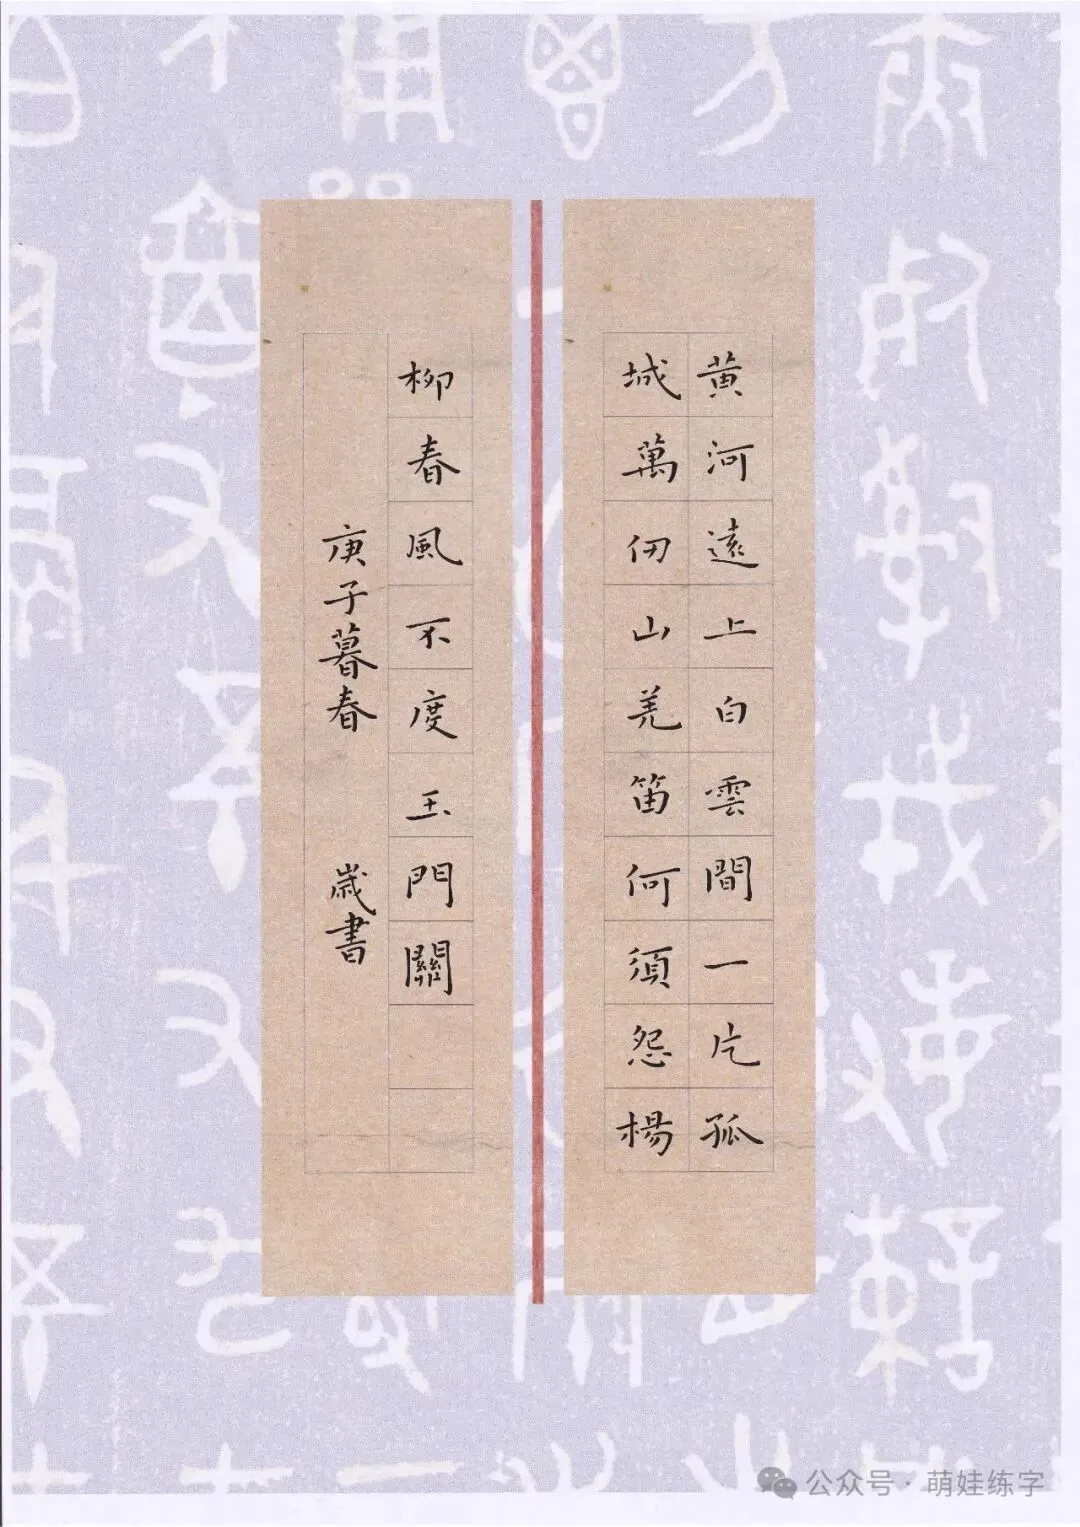 黄河遠上白雲間一片孤
城萬仞山羌笛何須怨楊
柳春風不度玉門關
庚子暮春 歲書
公众号·萌娃练字